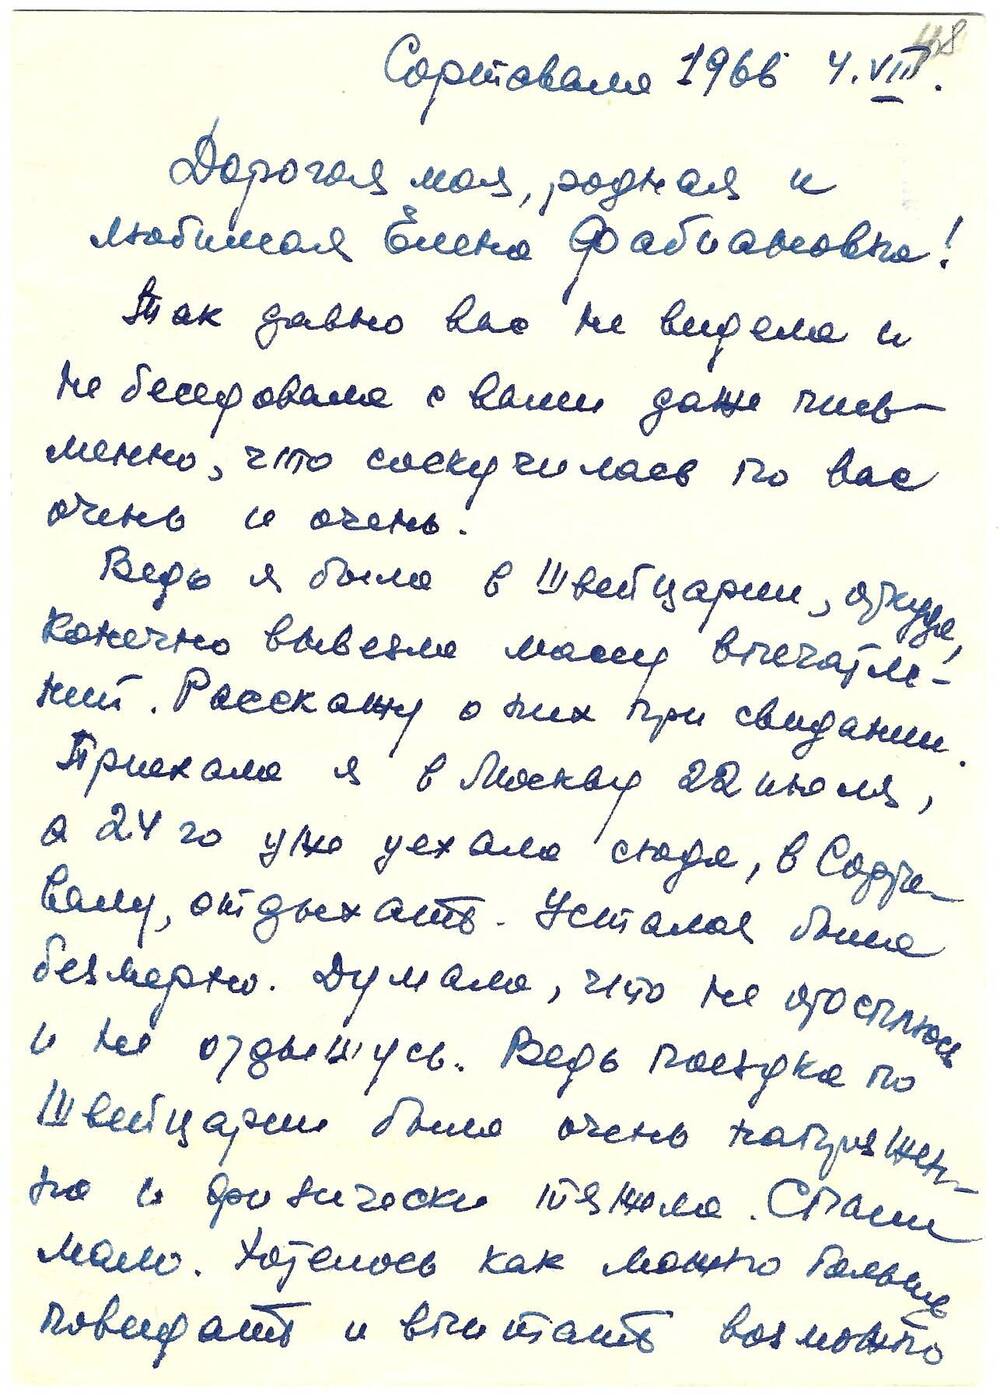 48
Сортавала 1966 4.VIII.
Дорогая моя, родная и
любимая Елена Фабиановна!
Так давно вас не видела и
не беседовала с вами даже пись-
менно, что соскучилась по вас
очень и очень.
Ведь я была в Швейцарии, откуда,
конечно вывезла массу впечатле-
ний. Расскажу о них при свидании.
Приехала я в Москву 22 июля,
а 24 го уже уехала сюда, в Сорта-
валу, отдыхать. Усталая была
безмерно. Думала, что не отосплюсь
и не отдышусь. Ведь поездка по
Швейцарии была очень напряжен-
на и физически тяжела. Спали
мало. Хотелось как можно больше
повидать и впитать возможно